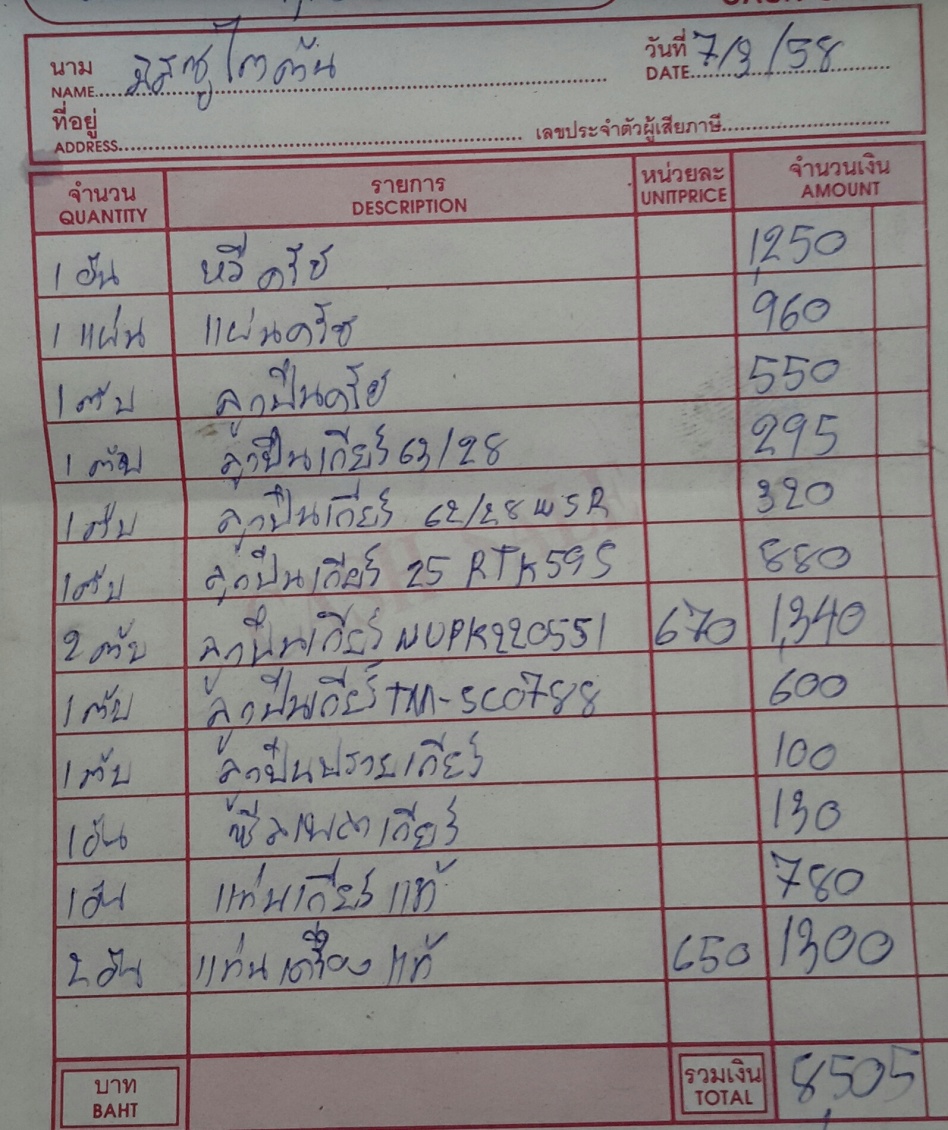 นาม มิสซูไตตัน วันที่ 7/3/58
NAME DATE
ที่อยู่
ADDRESS เลขประจำตัวผู้เสียภาษี
จำนวน รายการ หน่วยละ จำนวนเงิน
QUANTITY DESCRIPTION UNITPRICE AMOUNT
1 อัน หวีครัช 1,250
1 แผ่น แผ่นครัช 960
1 ตับ ลูกปืนครัช 550
1 ตับ ลูกปืนเกียร์ 63/28 295
1 ตับ ลูกปืนเกียร์ 62/28 W5R 320
1 ตับ ลูกปืนเกียร์ 25 RTK59S 880
2 ตับ ลูกปืนเกียร์ NUPK220551 670 1,340
1 ตับ ลูกปืนเกียร์ TM-SC0788 600
1 ตับ ลูกปืนปรายเกียร์ 100
1 อัน ซีลเพลาเกียร์ 130
1 อัน แท่นเกียร์ แท้ 780
2 อัน แท่นเครื่อง แท้ 650 1300
บาท รวมเงิน 8,505
BAHT TOTAL